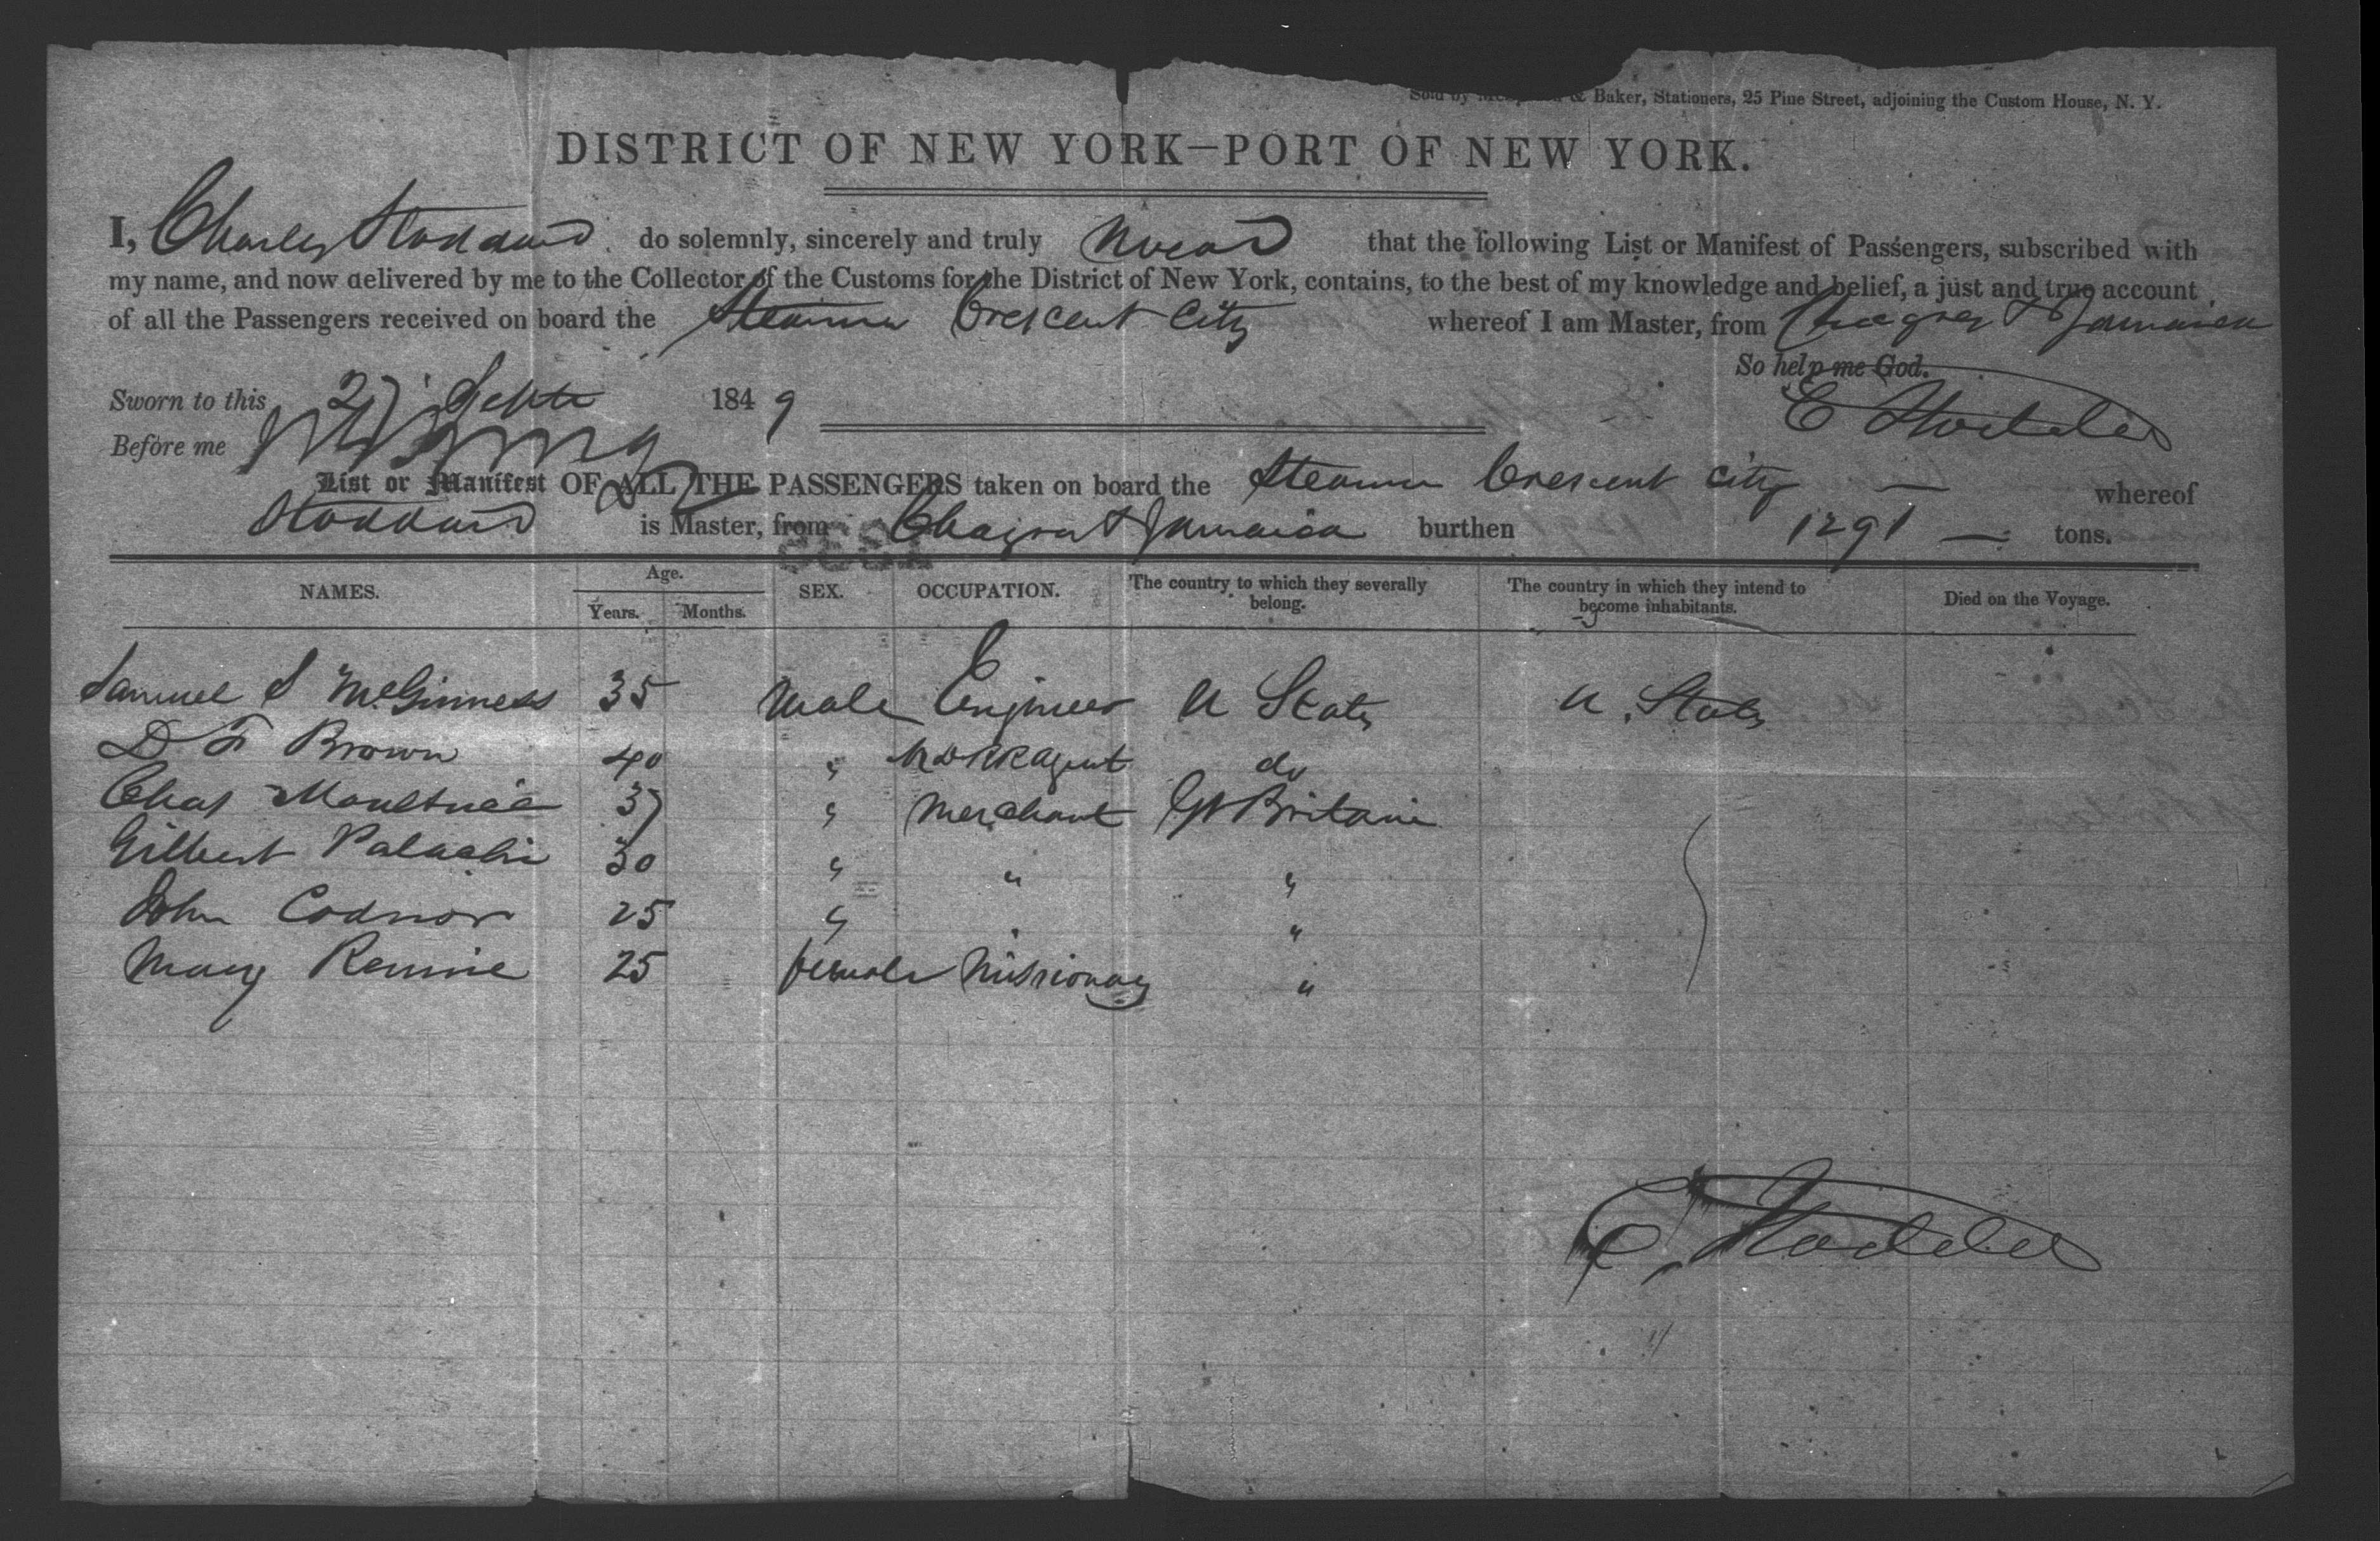 & Baker, Stationers, 25 Pine Street, adjoining the Custom House, N. Y.
DISTRICT OF NEW YORK—PORT OF NEW YORK.
I, Charles Stoddard do solemnly, sincerely and truly swear that the following List or Manifest of Passengers, subscribed with
my name, and now delivered by me to the Collector of the Customs for the District of New York, contains, to the best of my knowledge and belief, a just and true account
of all the Passengers received on board the Steamer Crescent City whereof I am Master, from Chagres & Jamaica
So help me God.
Sworn to this 27 Septr 1849
C Stoddard
Before me
List or Manifest OF ALL THE PASSENGERS taken on board the Steamer Crescent City — whereof
Stoddard is Master, from Chagres & Jamaica burthen 1291 — tons.
NAMES. Age. Years. Months. SEX. OCCUPATION. The country to which they severally belong. The country in which they intend to become inhabitants. Died on the Voyage.
Samuel S McGinness 35 Male Engineer U States U. States
D F Brown 40 " Agent do
Chas Moultrie 37 " Merchant Gt Britain
Gilbert Palachi 30 " " "
John Codnor 25 " " "
Mary Rennie 25 female Missionary "
C. Stoddard